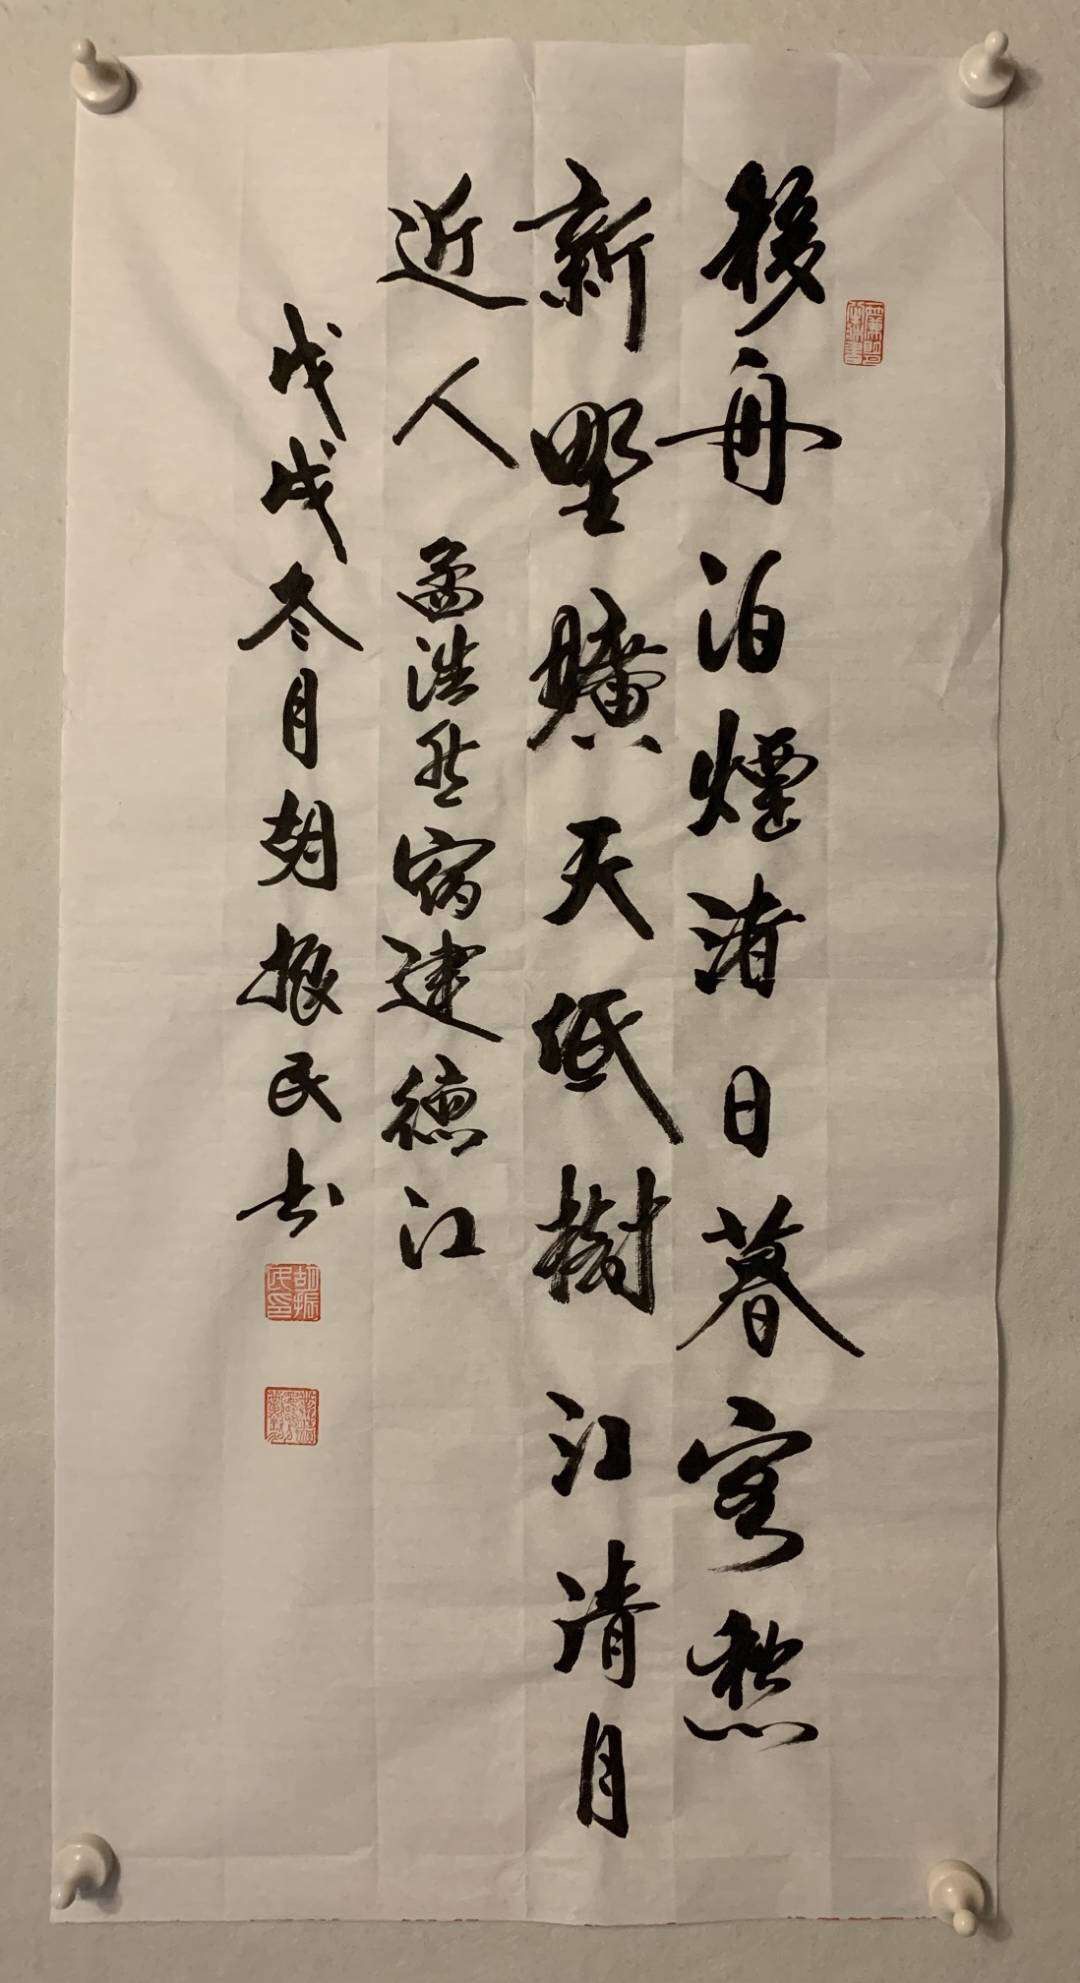 移舟泊煙渚日暮客愁
新野曠天低樹江清月
近人 孟浩然宿建德江
戊戌冬月胡振民书
胡振民印